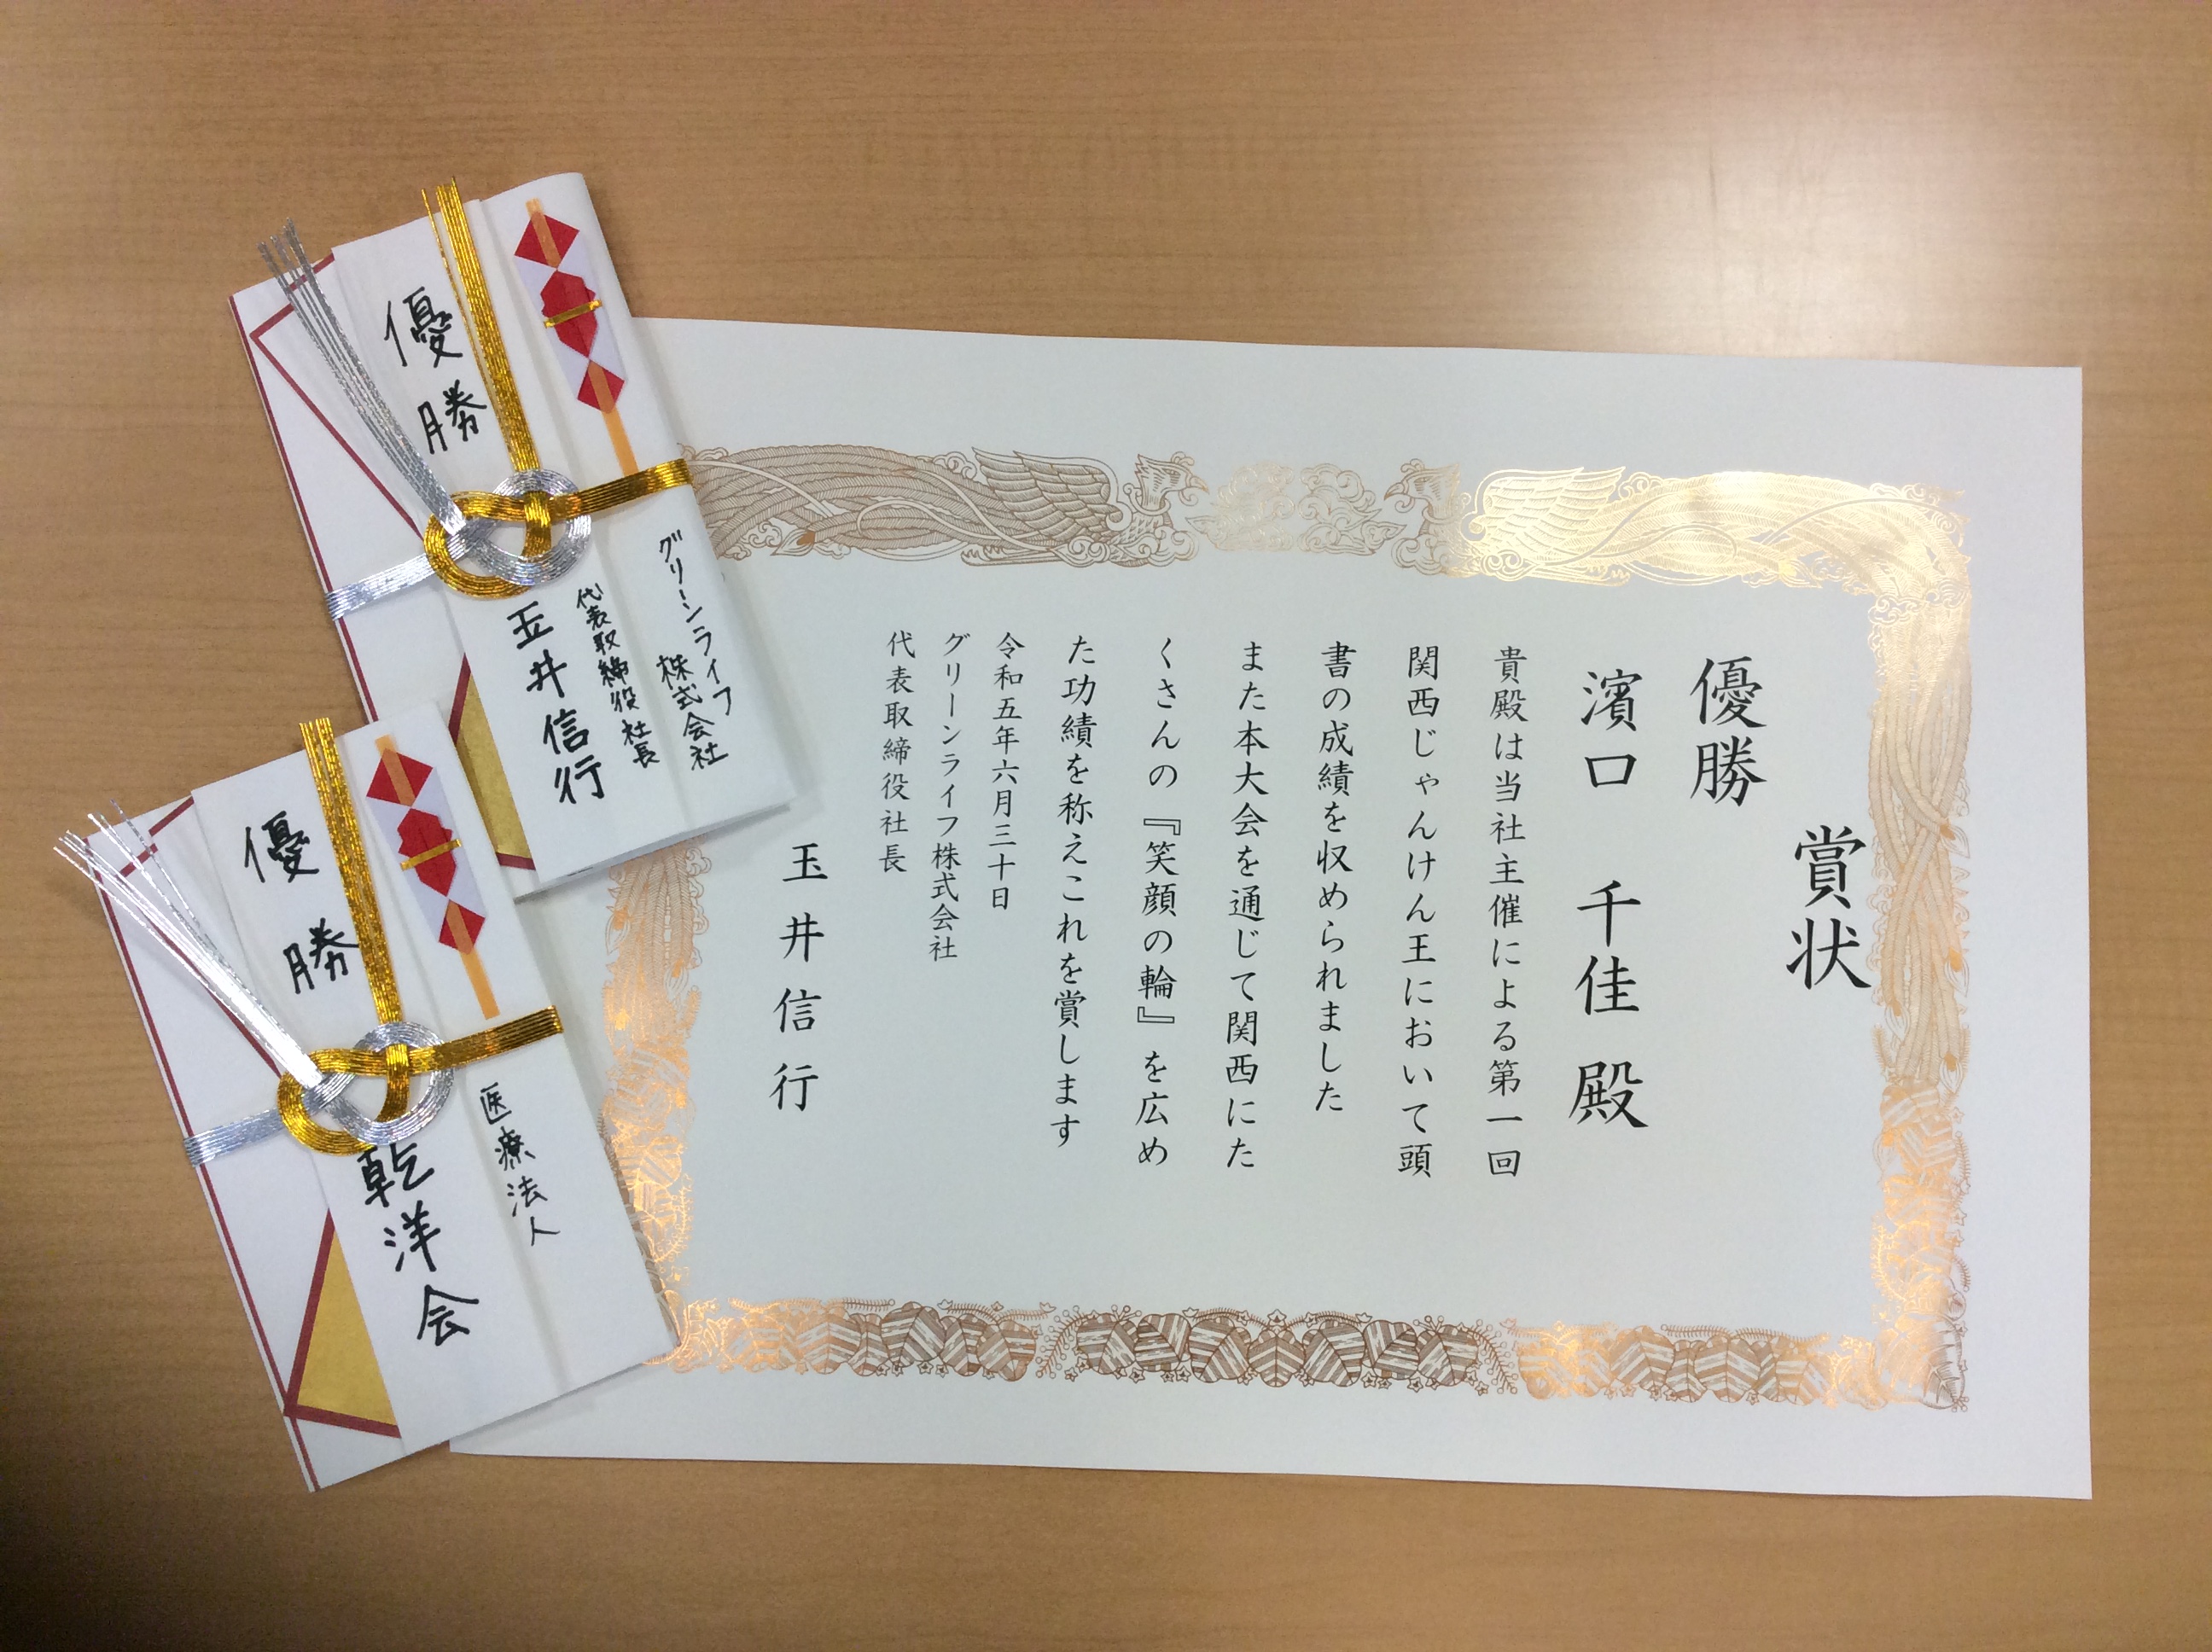 賞状
優勝
濱口 千佳 殿
貴殿は当社主催による第一回
関西じゃんけん王において頭
書の成績を収められました
また本大会を通じて関西にた
くさんの『笑顔の輪』を広め
た功績を称えこれを賞します
令和五年六月三十日
グリーンライフ株式会社
代表取締役社長
玉井信行
優勝
グリーンライフ
株式会社
代表取締役社長
玉井信行
優勝
医療法人
乾洋会